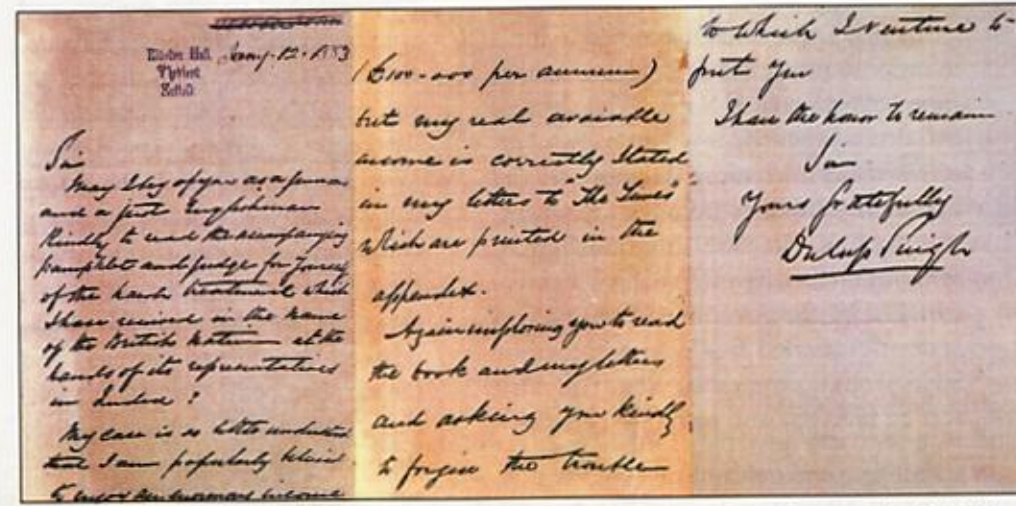 Elveden Hall
Thetford
Suffolk
Jany. 12. 1883
Sir
May I beg of you as a
and a just Englishman
kindly to read the accompanying
pamphlet and judge for yourself
of the harsh treatment which
I have received in the name
of the British Nation at the
hands of its representatives
in India?
My case is so little understood
that I am popularly believed
to enjoy an enormous income
(£100.000 per annum)
but my real available
income is correctly stated
in my letters to "The Times"
which are printed in the
appendix.
Again imploring you to read
the book and my letters
and asking you kindly
to forgive the trouble
to which I venture to
put you
I have the honor to remain
Sir
Yours gratefully
Duleep Singh